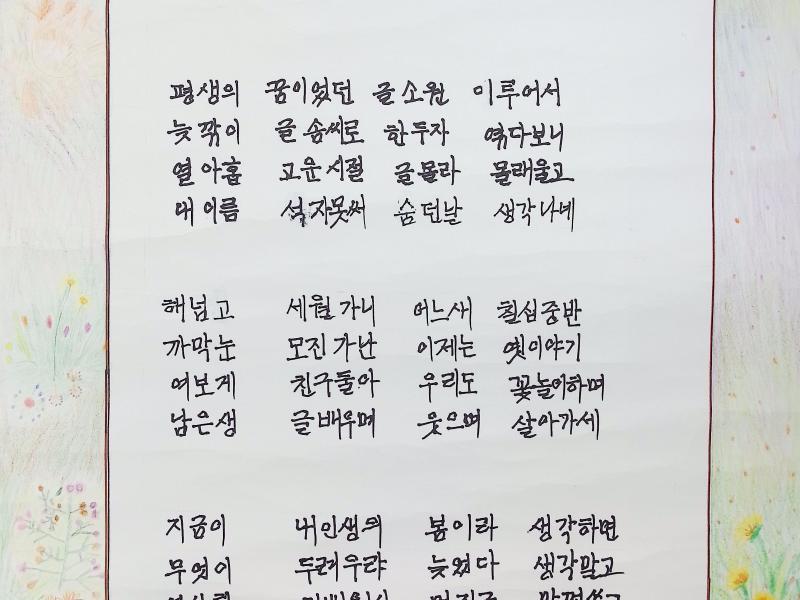 평생의 꿈이었던 글소원 이루어서
늦깎이 글 솜씨로 한두자 엮다보니
열 아홉 고운 시절 글몰라 몰래울고
내 이름 석자못써 숨던날 생각나네
해넘고 세월 가니 어느새 칠십중반
까막눈 모진 가난 이제는 옛이야기
여보게 친구들아 우리도 꽃놀이하며
남은생 글배우며 웃으며 살아가세
지금이 내인생의 봄이라 생각하면
무엇이 두려우랴 늦었다 생각말고